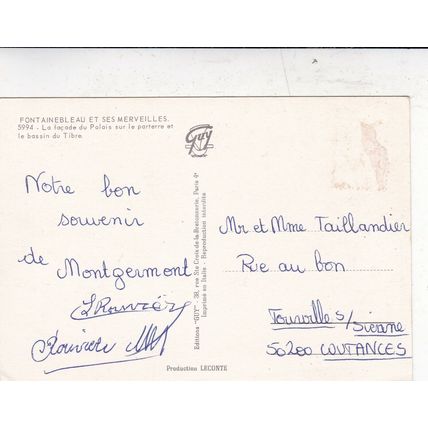 FONTAINEBLEAU ET SES MERVEILLES.
5994 - La façade du Palais sur le parterre et
le bassin du Tibre
GUY
Notre bon
souvenir
de Montgermont
Editions "GUY" - 38, rue Ste Croix-de-la-Bretonnerie, Paris 4e
Imprimé en Italie - Reproduction interdite
Mr et Mme Taillandier
Rue au bon
Tourville s/Sienne
50200 COUTANCES
Production LECONTE